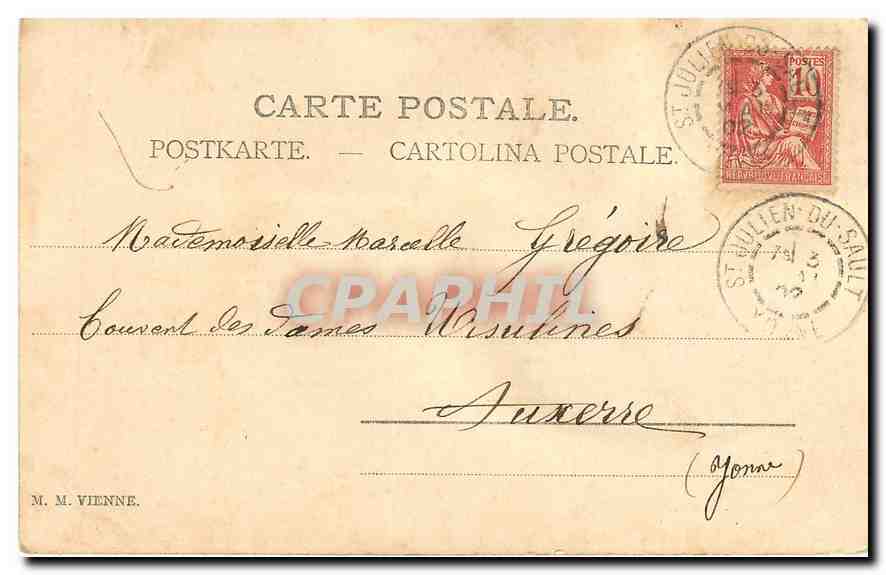 CARTE POSTALE.
POSTKARTE. — CARTOLINA POSTALE.
POSTES
10
REPUBLIQUE FRANÇAISE
ST JULIEN-DU-
ST JULIEN-DU-SAULT
YONNE
Mademoiselle Marcelle Grégoire
CPAPHIL
Couvent des Dames Ursulines
Auxerre
(Yonne)
M. M. VIENNE.